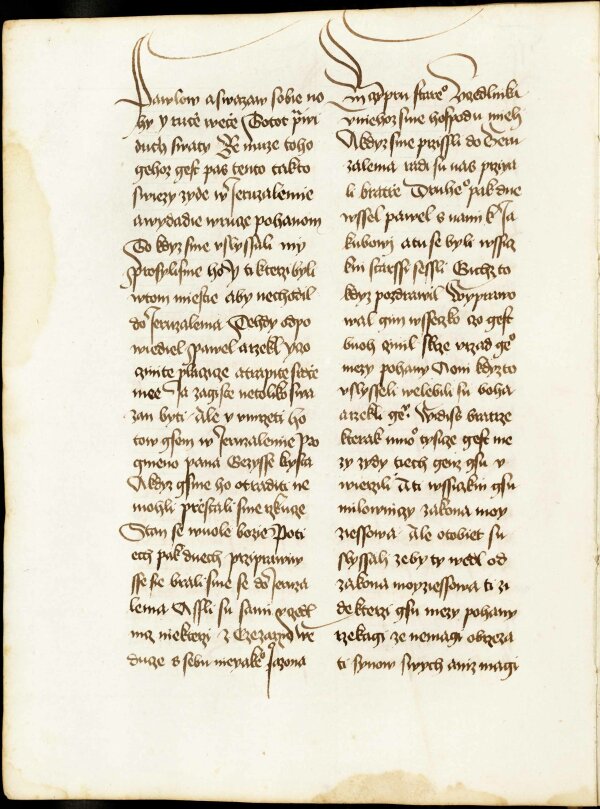 Pawlow a swazaw sobie no
hy y rucě wecě Totot prawi
duch swaty Že muze toho
gehoz gest pas tento takto
swiezy zyde w Jeruzalemie
a wydadie w ruce pohanom
To kdyz sme vslyssali my
prosylisme ho y ti kterzi byli
w tom miestie aby nechodil
do Jeruzalema Tehdy odpo
wiediel Pawel a rzekl Y czo
czinite placzicze a trapite srdcze
mee Ja zagiste netoliko swa
zan byti Ale y vmrzeti ho
tow gsem w Jeruzalemie Pro
gmeno pana Gezysse krysta
A kdyz gsme ho otraditi ne
mohli přestali sme rzkucze
Stan se wuole bozie Poti
ech pak dnech prziprawiw
sse se brali sme se do Jeruza
lema A ssli su s nami z vczedl
niz niekterzi z Czezarzie we
ducze s sebu nieyakeo Jazona
z Cypru stareo Vczedlnika
v niehoz sme hospodu mieli
A kdyz sme prissli do Jeru
zalema radi su nas przia
li bratrie Druheo pak dne
wssel pawel s nami k Ja
kubowi a tu se byli wssicz
kni starssi sessli Gichzto
kdyz pozdrawil Wyprawo
wal gim wsseczko czo gest
buoh czinil skrze vrzad geo
mezy pohany A oni kdyzto
vslysseli welebili su boha
a rzekli geu Widiss bratrze
kterak mnoo tysicz gest me
zy zydy tiech genz gsu v
wierzili A ti wssiczkni gsu
milownyczy zakona moy
ziessowa Ale o tobiet su
slyssali zeby ty wedl od
zakona moyziessowa ti zi
de kterzi gsu mezy pohany
rzekagi ze nemagi obrzeza
ti synow swych aniz magi